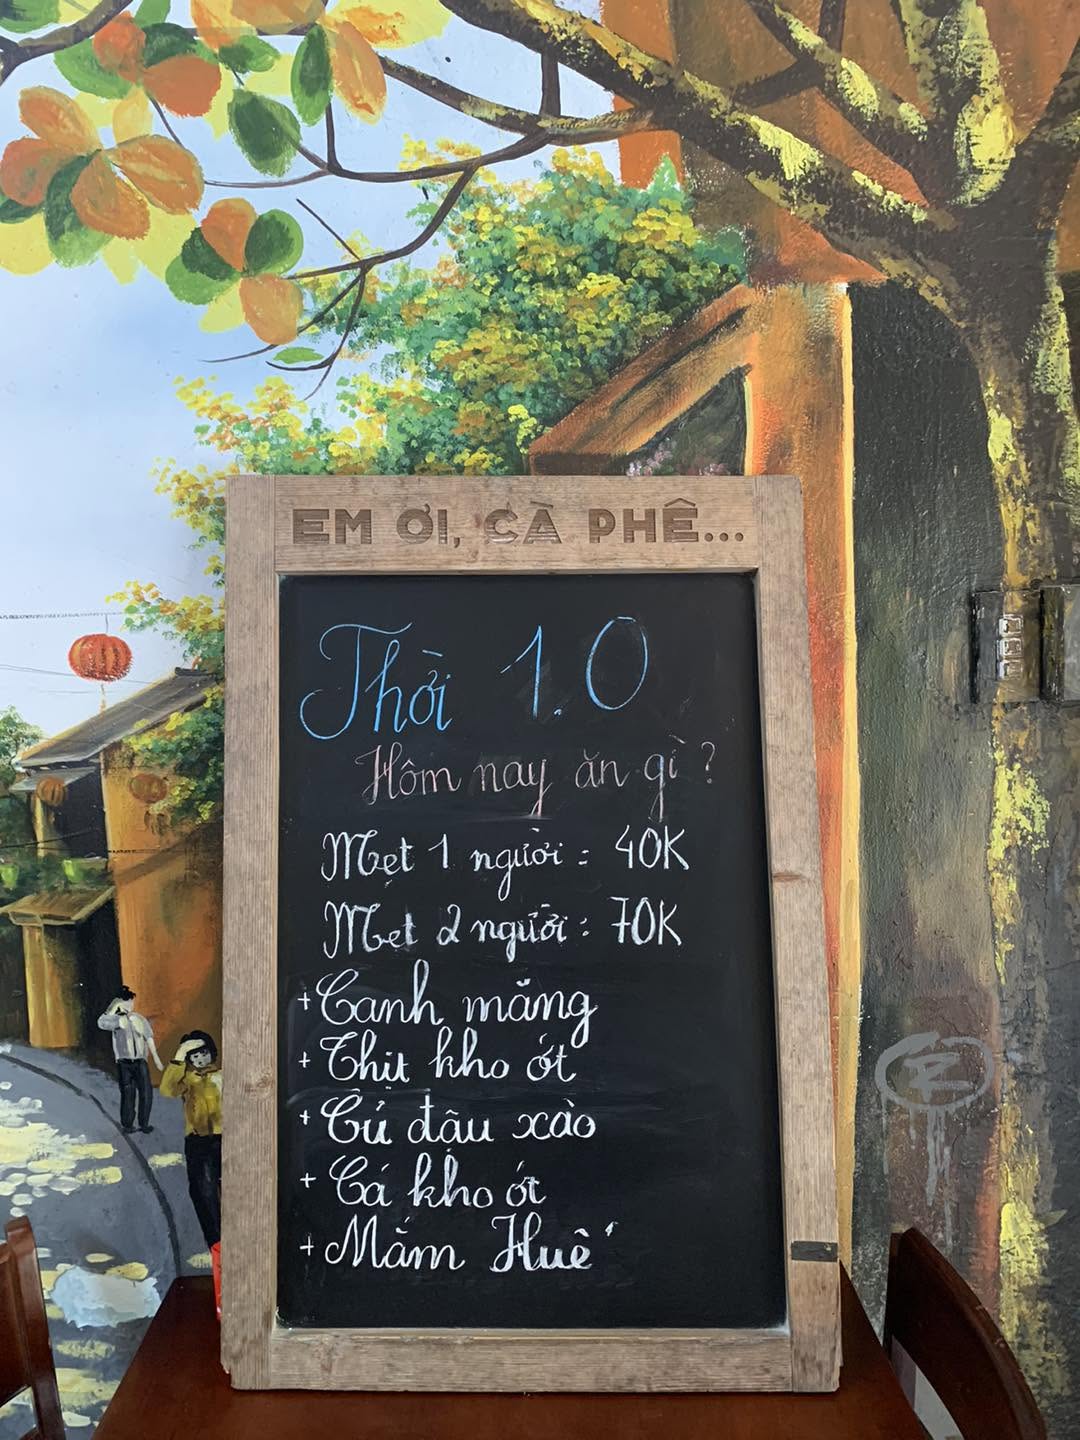 EM ƠI, CÀ PHÊ...
Thời 1.0
Hôm nay ăn gì ?
Mẹt 1 người : 40K
Mẹt 2 người : 70K
+ Canh măng
+ Thịt kho ớt
+ Củ đậu xào
+ Cá kho ớt
+ Mắm Huế